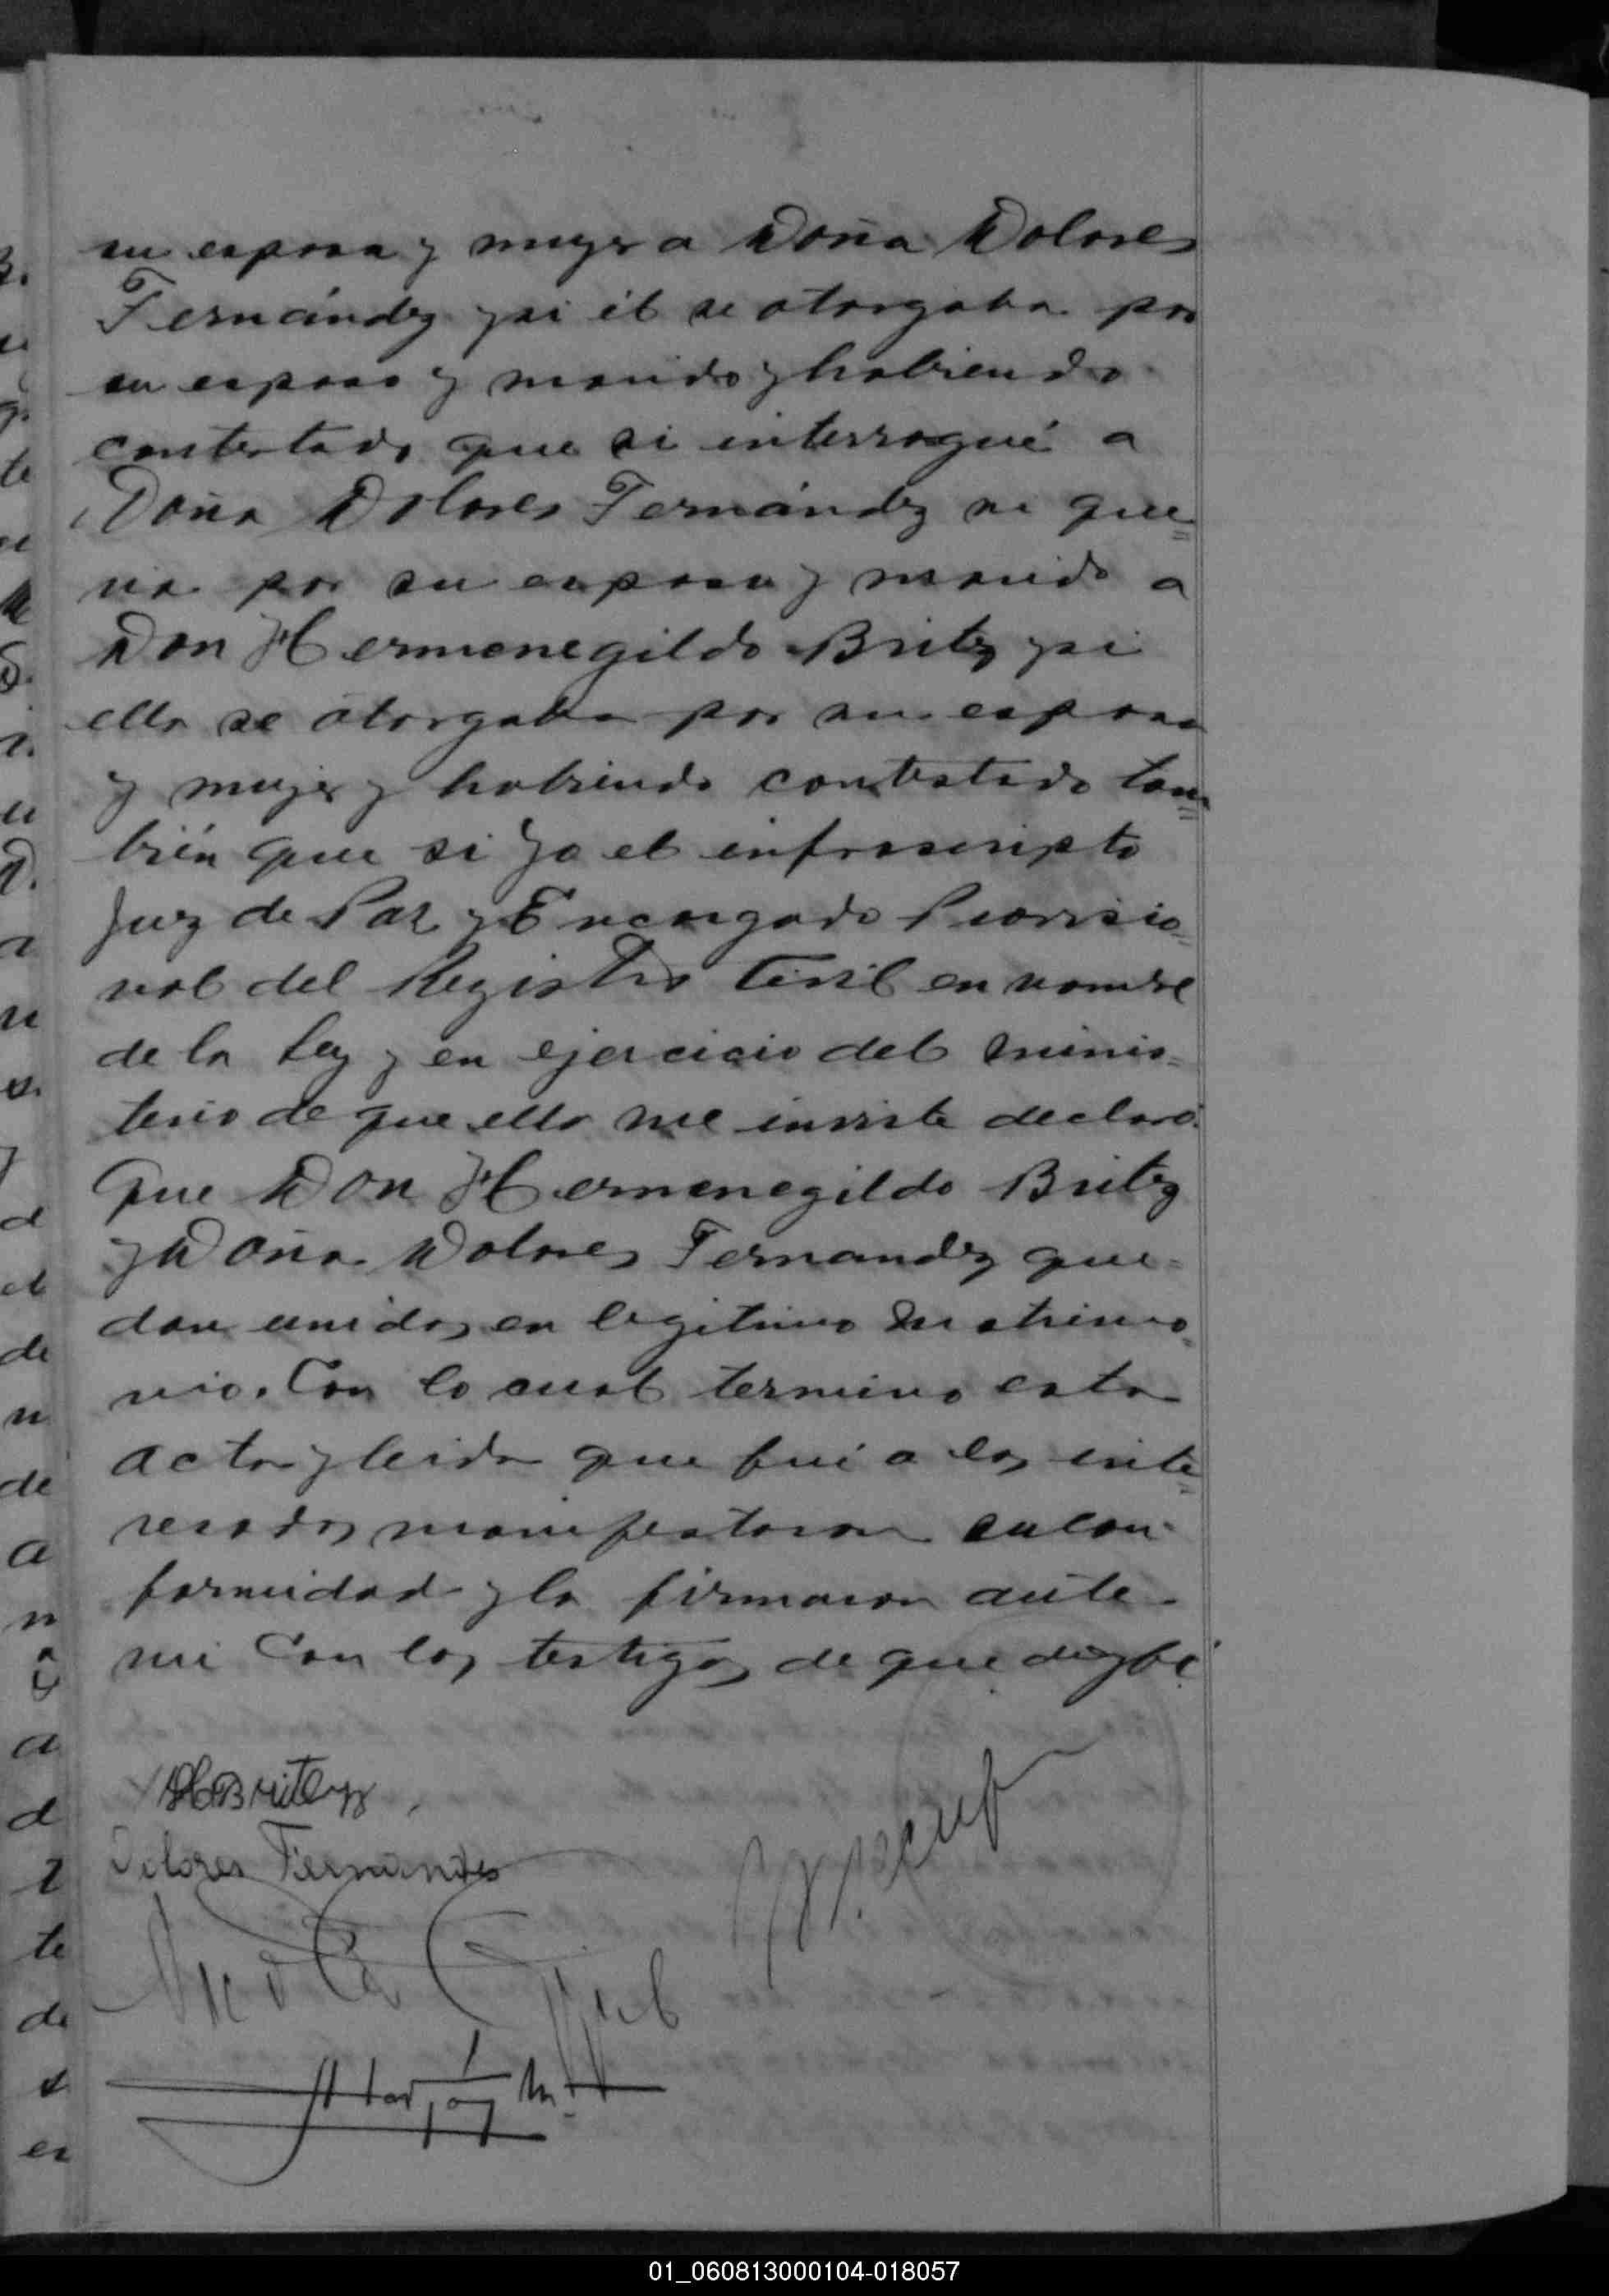 su esposa y mujer a Doña Dolores
Fernández y si él se otorgaba por
su esposo y marido y habiendo
contestado que si interrogué a
Doña Dolores Fernández si que=
ria por su esposo y marido a
Don Hermenegildo Britez y si
ella se otorgaba por su esposa
y mujer y habiendo contestado tam=
bién que si Yo el infrascripto
Juez de Paz y Encargado Provisio=
nal del Registro Civil en nombre
de la Ley y en ejercicio del minis=
terio de que ella me inviste declaro:
que Don Hermenegildo Britez
y Doña Dolores Fernandez que=
dan unidos en legitimo matrimo=
nio. Con lo cual termino esta
acta y leida que fué a los inte=
resados manifestaron su con-
formidad y la firmaron ante
mi con los testigos de que doy fé
H Britez
Dolores Fernandes
01_060813000104-018057